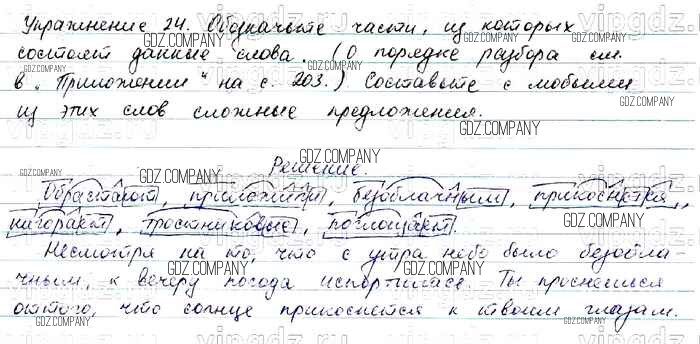 Упражнение 24. Обозначьте части, из которых
состоят данные слова. (О порядке разбора см.
в „Приложении“ на с. 203.) Составьте с любыми
из этих слов сложные предложения.
Решение.
Обрастают, приложили, безоблачным, прикоснётся,
нагорают, тростниковые, поглощает.
Несмотря на то, что с утра небо было безобла-
чным, к вечеру погода испортилась. Ты проснешься
оттого, что солнце прикоснется к твоим глазам.
GDZ.COMPANY
vipgdz.ru